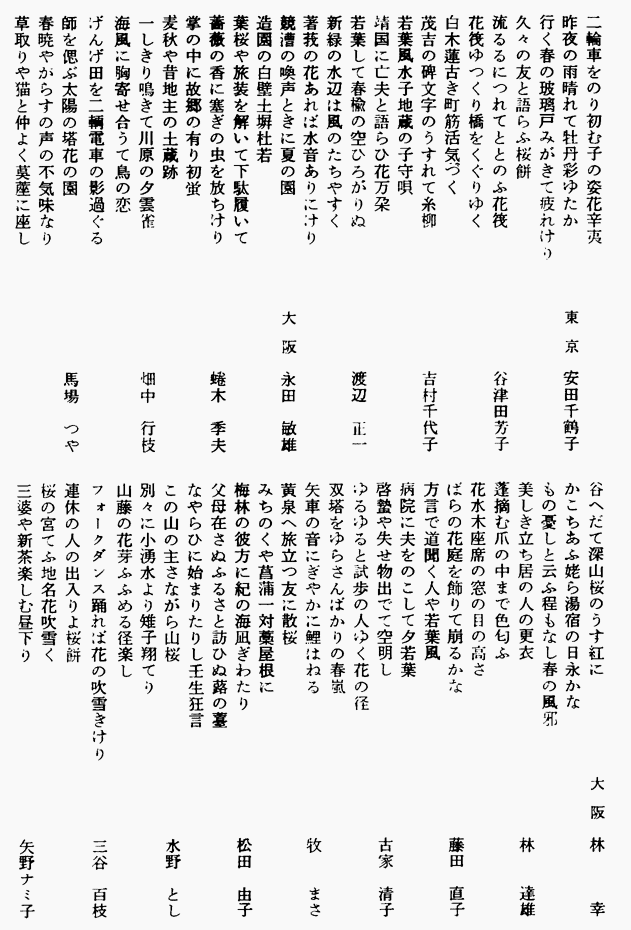 二輪車をのり初む子の姿花辛夷
昨夜の雨晴れて牡丹彩ゆたか
東京 安田千鶴子
行く春の玻璃戸みがきて疲れけり
久々の友と語らふ桜餅
流るるにつれてととのふ花筏
谷津田芳子
花筏ゆつくり橋をくぐりゆく
白木蓮古き町筋活気づく
茂吉の碑文字のうすれて糸柳
吉村千代子
若葉風水子地蔵の子守唄
靖国に亡夫と語らひ花万朶
若葉して春楡の空ひろがりぬ
渡辺 正一
新緑の水辺は風のたちやすく
著莪の花あれば水音ありにけり
競漕の喚声ときに夏の園
大阪 永田 敏雄
造園の白壁土塀杜若
葉桜や旅装を解いて下駄履いて
薔薇の香に塞ぎの虫を放ちけり
蜷木 季夫
掌の中に故郷の有り初蛍
麦秋や昔地主の土蔵跡
一しきり鳴きて川原の夕雲雀
畑中 行枝
海風に胸寄せ合うて鳥の恋
げんげ田を二輌電車の影過ぐる
師を偲ぶ太陽の塔花の園
馬場 つや
春暁やからすの声の不気味なり
草取りや猫と仲よく茣蓙に座し
谷へだて深山桜のうす紅に
大阪 林 幸
かこちあふ姥ら湯宿の日永かな
もの憂しと云ふ程もなし春の風邪
美しき立ち居の人の更衣
林 達雄
蓬摘む爪の中まで色匂ふ
花水木座席の窓の日の高さ
ばらの花庭を飾りて崩るかな
藤田 直子
方言で道聞く人や若葉風
病院に夫をのこして夕若葉
啓蟄や失せ物出でて空明し
古家 清子
ゆるゆると試歩の人ゆく花の径
双塔をゆらさんばかりの春嵐
矢車の音にぎやかに鯉はねる
牧 まさ
黄泉へ旅立つ友に散桜
みちのくや菖蒲一対藁屋根に
梅林の彼方に紀の海凪ぎわたり
松田 由子
父母在さぬふるさと訪ひぬ蕗の薹
なやらひに始まりたりし壬生狂言
この山の主さながら山桜
水野 とし
別々に小湧水より雉子翔てり
山藤の花芽ふふめる径楽し
フォークダンス踊れば花の吹雪きけり
三谷 百枝
連休の人の出入りよ桜餅
桜の宮てふ地名花吹雪く
三婆や新茶楽しむ昼下り
矢野ナミ子